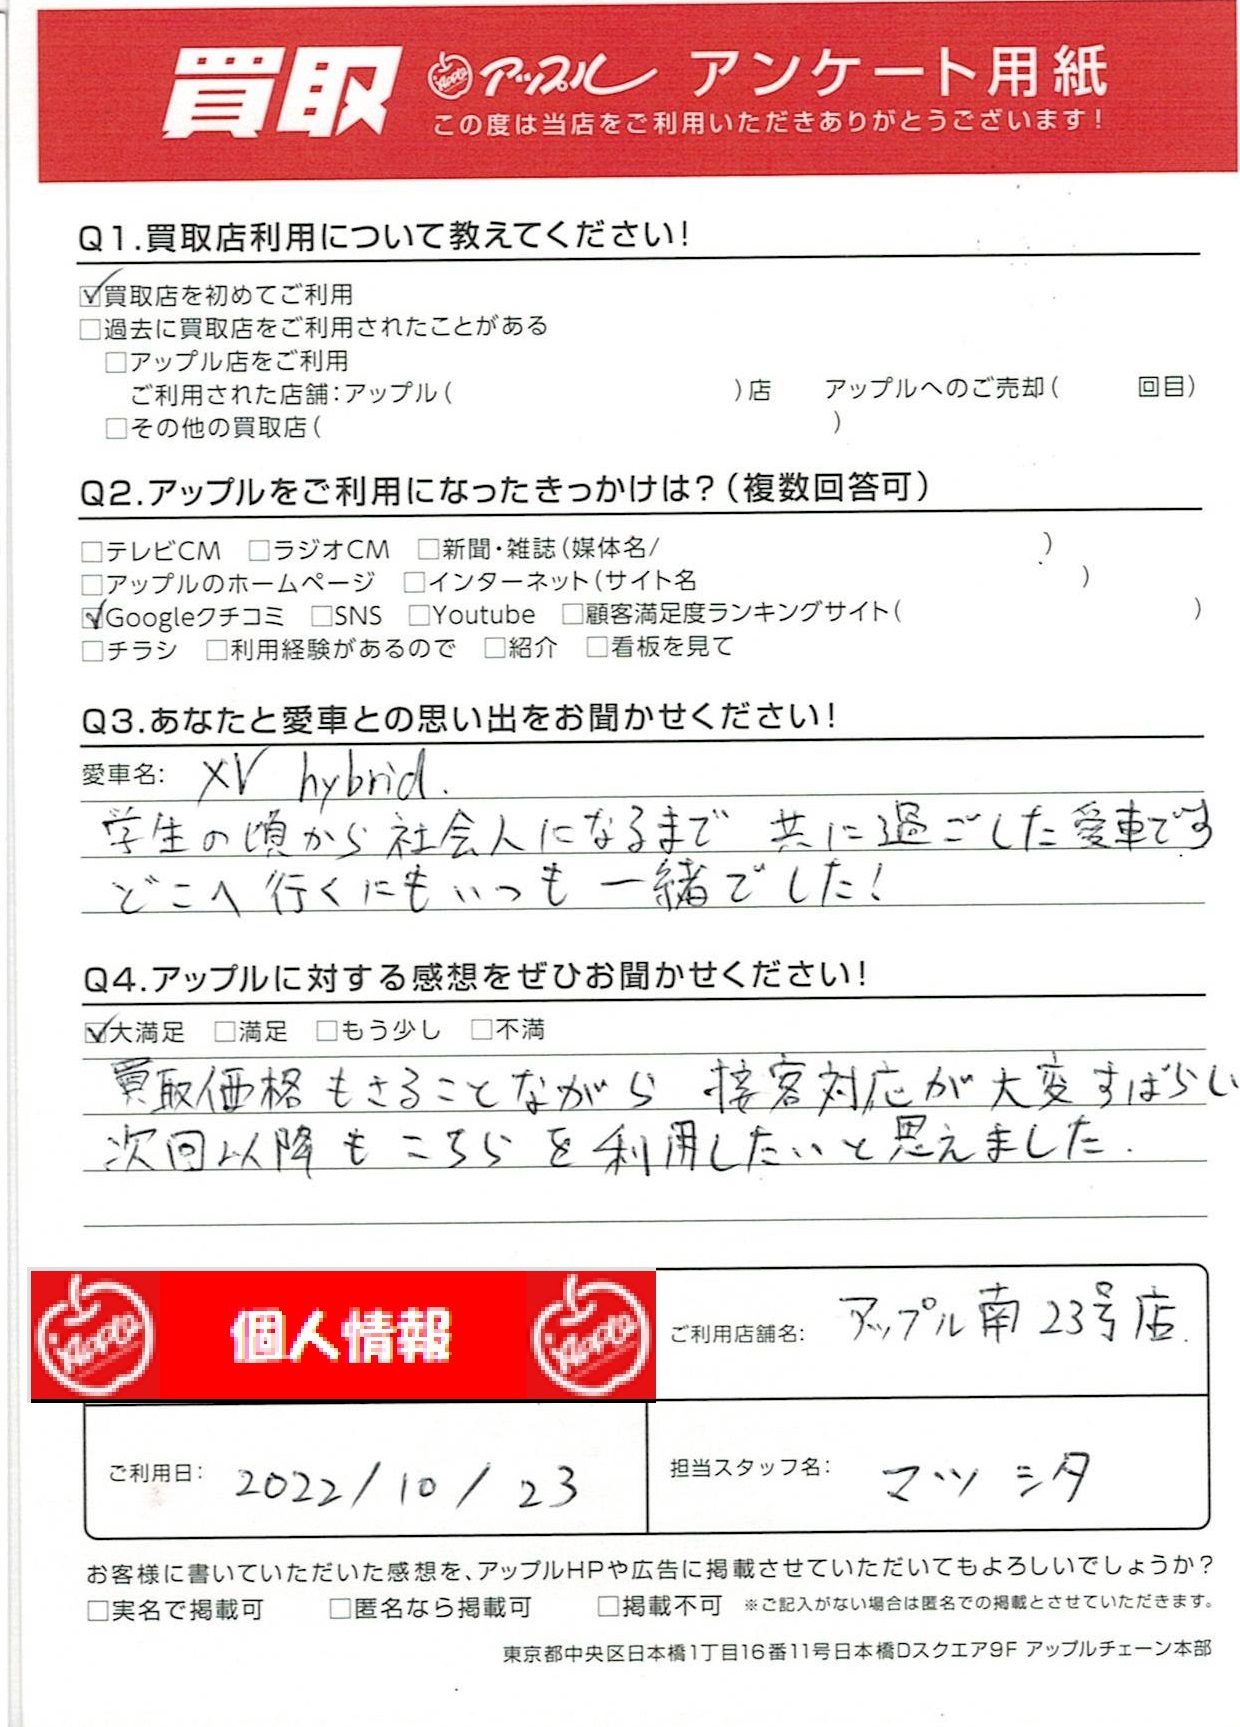 買取 Apple アップル アンケート用紙
この度は当店をご利用いただきありがとうございます!
Q1.買取店利用について教えてください!
☑買取店を初めてご利用
□過去に買取店をご利用されたことがある
□アップル店をご利用
ご利用された店舗:アップル( )店 アップルへのご売却( 回目)
□その他の買取店( )
Q2.アップルをご利用になったきっかけは?(複数回答可)
□テレビCM □ラジオCM □新聞・雑誌(媒体名/ )
□アップルのホームページ □インターネット(サイト名 )
☑Googleクチコミ □SNS □Youtube □顧客満足度ランキングサイト( )
□チラシ □利用経験があるので □紹介 □看板を見て
Q3.あなたと愛車との思い出をお聞かせください!
愛車名: XV hybrid.
学生の頃から社会人になるまで 共に過ごした愛車です
どこへ行くにもいつも一緒でした!
Q4.アップルに対する感想をぜひお聞かせください!
☑大満足 □満足 □もう少し □不満
買取価格もさることながら 接客対応が大変すばらしい
次回以降もこちらを利用したいと思えました.
Apple 個人情報 Apple
ご利用店舗名: アップル南23号店.
ご利用日: 2022/10/23
担当スタッフ名: マツシタ
お客様に書いていただいた感想を、アップルHPや広告に掲載させていただいてもよろしいでしょうか?
□実名で掲載可 □匿名なら掲載可 □掲載不可 ※ご記入がない場合は匿名での掲載とさせていただきます。
東京都中央区日本橋1丁目16番11号日本橋Dスクエア9F アップルチェーン本部